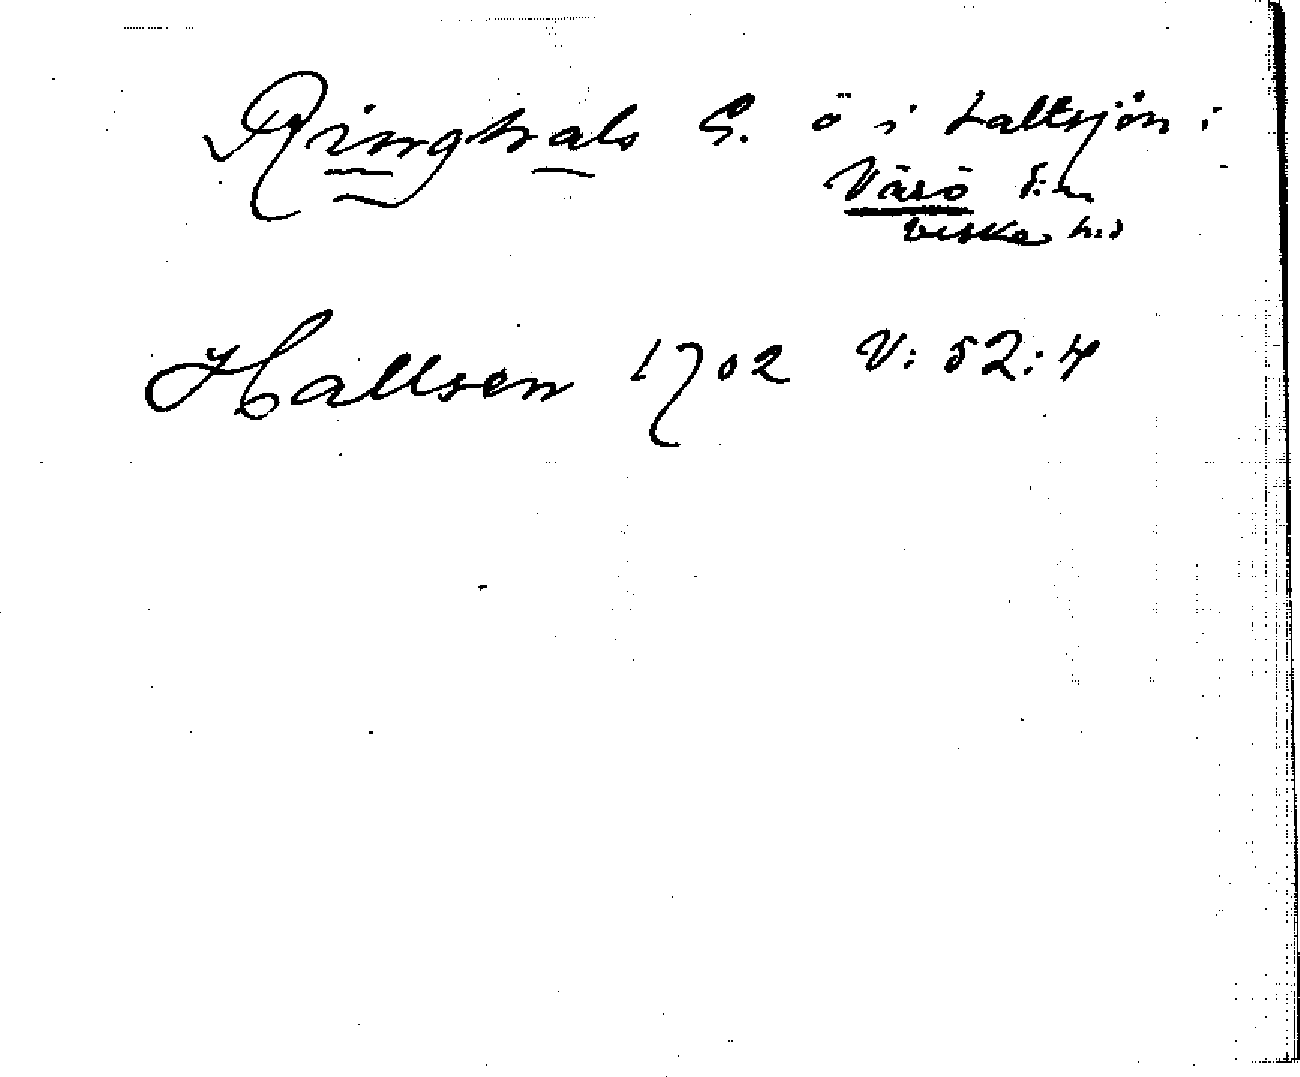 Ringhals G. ö i saltsjön i
Värö s:n
Viske h:d
Hallsen 1702 V: 52:4